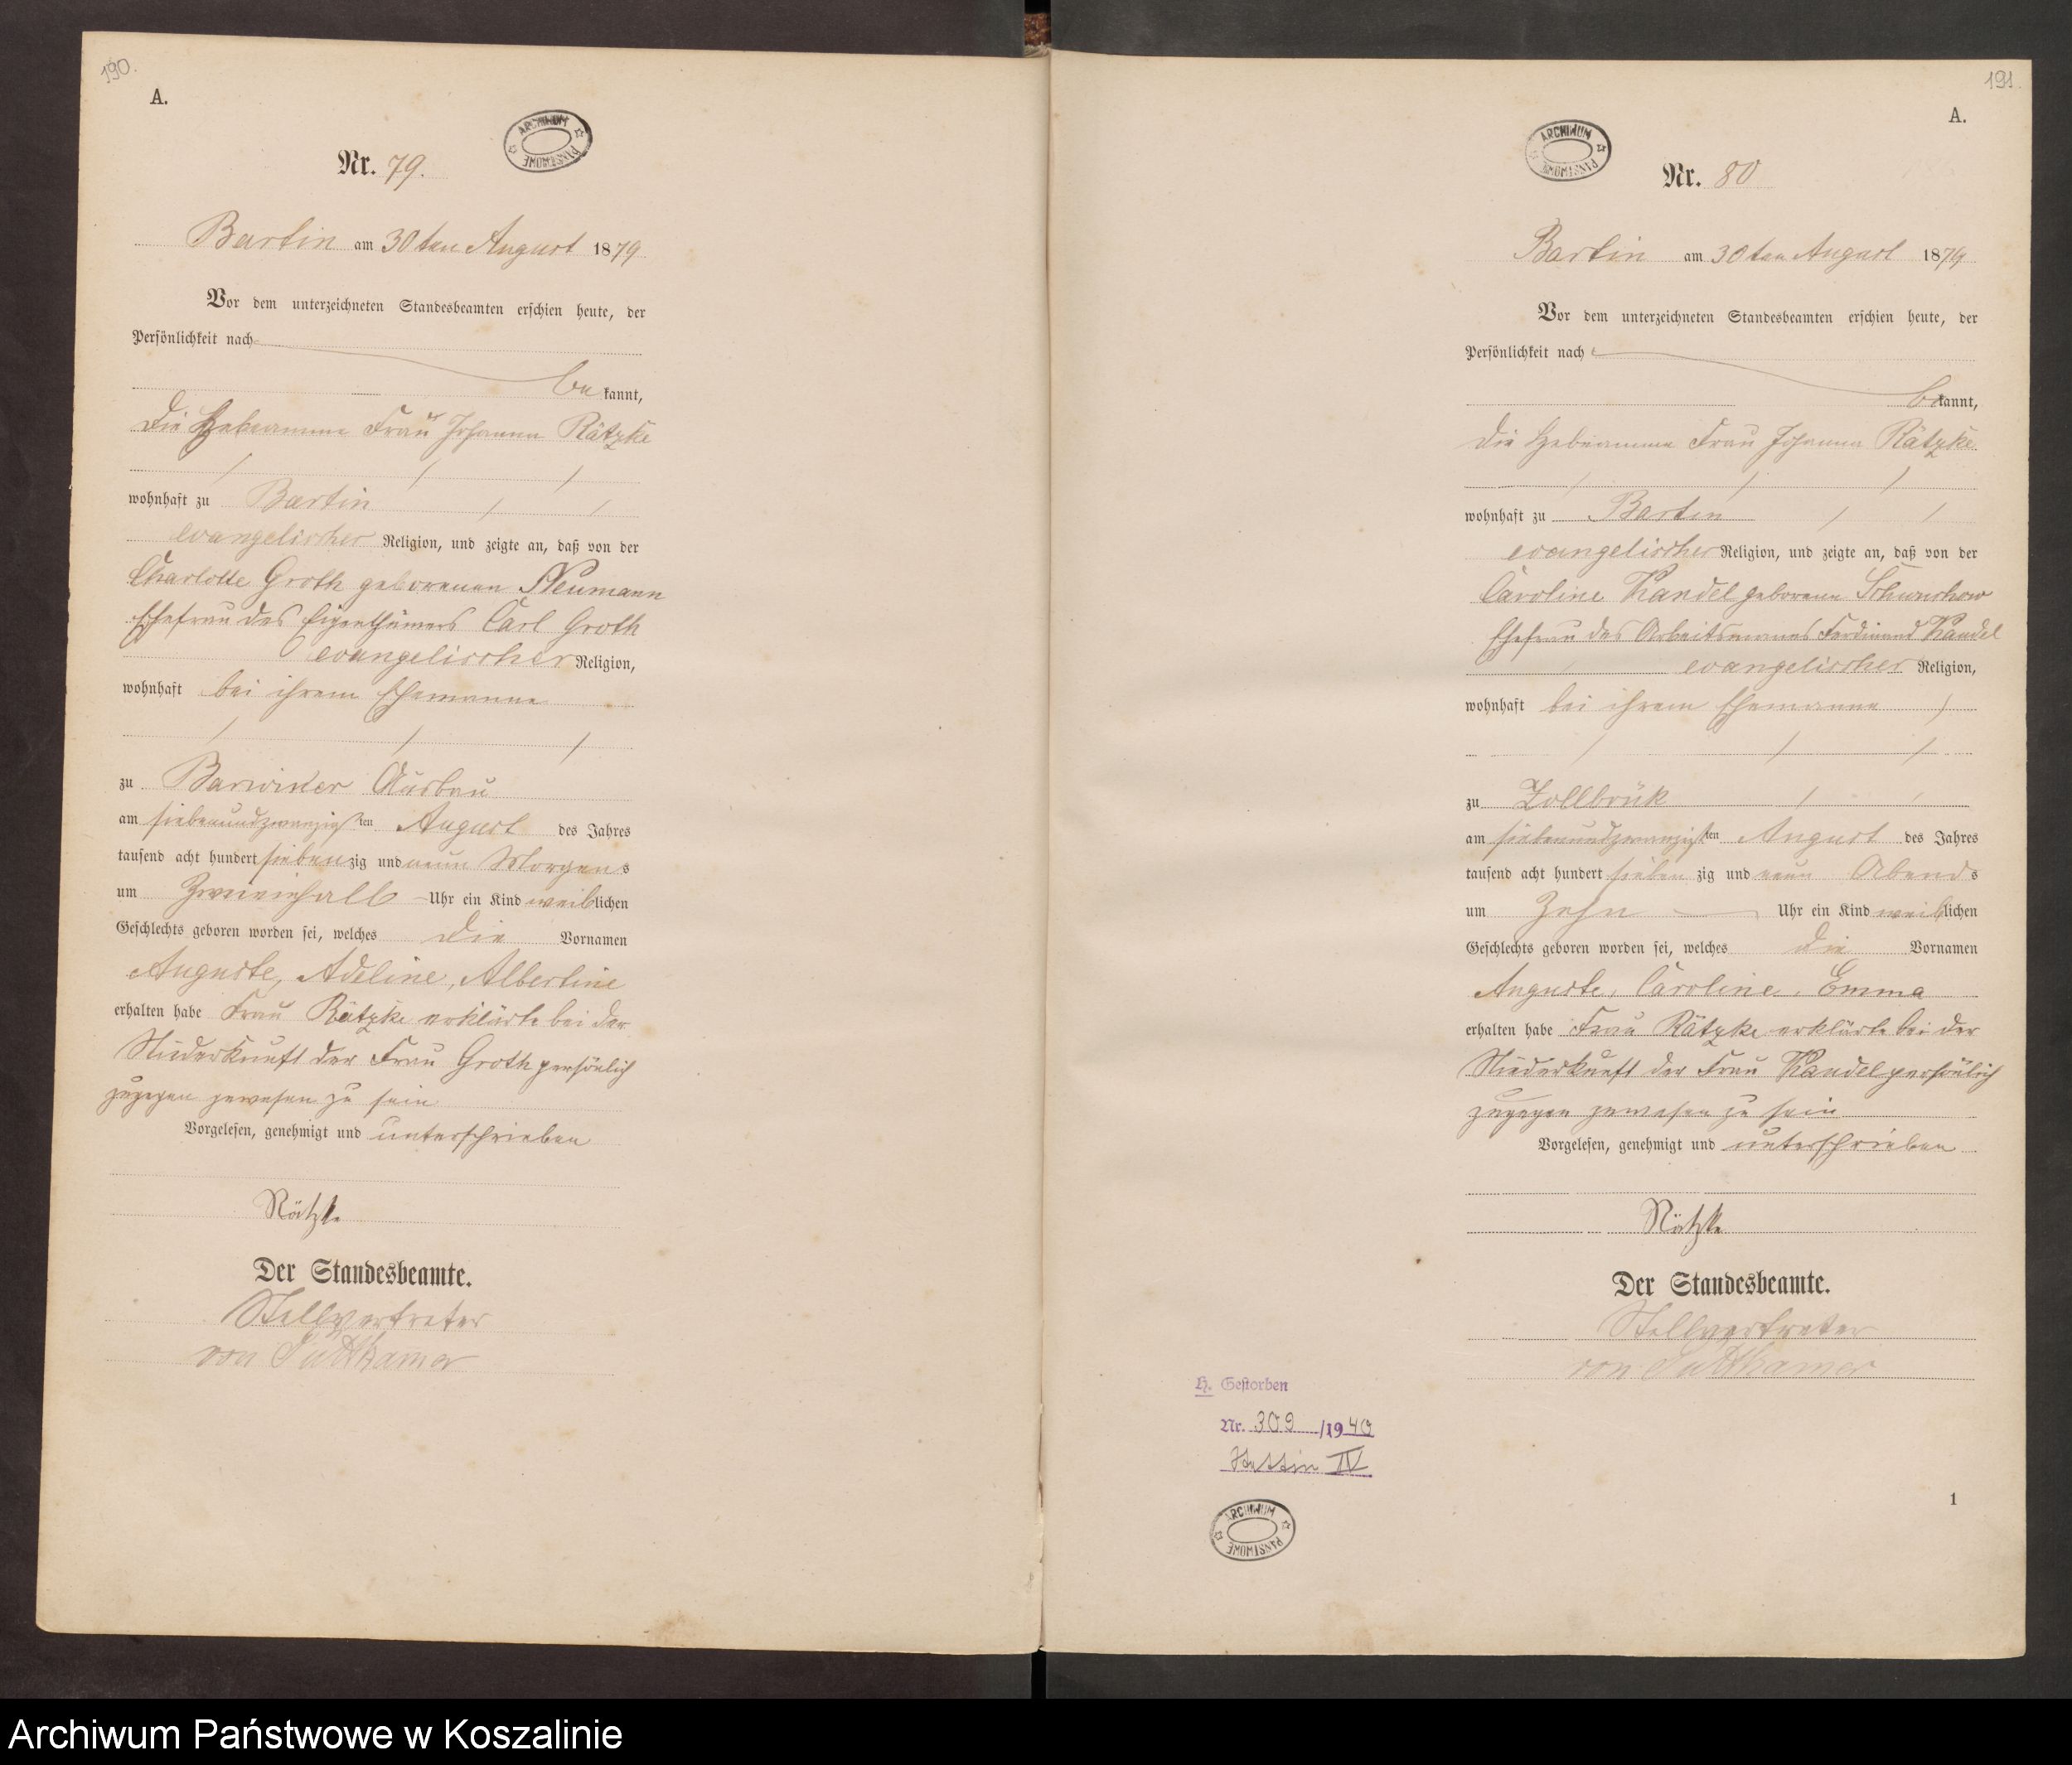 190.
A.
ARCHIWUM PAŃSTWOWE
Nr. 79.
Bartin am 30ten August 1879
Vor dem unterzeichneten Standesbeamten erschien heute, der
Persönlichkeit nach
be kannt,
die Hebeamme Frau Johanna Rätzke
wohnhaft zu Bartin
evangelischer Religion, und zeigte an, daß von der
Charlotte Groth geborenen Neumann
Ehefrau des Eigenthümers Carl Groth
evangelischer Religion,
wohnhaft bei ihrem Ehemanne
zu Barwiner Ausbau
am siebenundzwanzigsten August des Jahres
tausend acht hundert siebenzig und neun Morgens
um Zweieinhalb Uhr ein Kind weiblichen
Geschlechts geboren worden sei, welches die Vornamen
Auguste, Adeline, Albertine
erhalten habe Frau Rätzke erklärte bei der
Niederkunft der Frau Groth persönlich
zugegen gewesen zu sein
Vorgelesen, genehmigt und unterschrieben
Rätzke
Der Standesbeamte.
Stellvertreter
von Puttkamer
191.
A.
ARCHIWUM PAŃSTWOWE
Nr. 80
Bartin am 30ten August 1879
Vor dem unterzeichneten Standesbeamten erschien heute, der
Persönlichkeit nach
bekannt,
die Hebeamme Frau Johanna Rätzke
wohnhaft zu Bartin
evangelischer Religion, und zeigte an, daß von der
Caroline Kandel geborene
Ehefrau des Arbeitsmannes Ferdinand Kandel
evangelischer Religion,
wohnhaft bei ihrem Ehemanne
zu Zollbrük
am siebenundzwanzigsten August des Jahres
tausend acht hundert siebenzig und neun Abends
um Zehn Uhr ein Kind weiblichen
Geschlechts geboren worden sei, welches die Vornamen
Auguste, Caroline, Emma
erhalten habe Frau Rätzke erklärte bei der
Niederkunft der Frau Kandel persönlich
zugegen gewesen zu sein
Vorgelesen, genehmigt und unterschrieben
Rätzke
Der Standesbeamte.
Stellvertreter
von Puttkamer
H. Gestorben
Nr. 309/1940
Stettin IV
ARCHIWUM PAŃSTWOWE
1
Archiwum Państwowe w Koszalinie